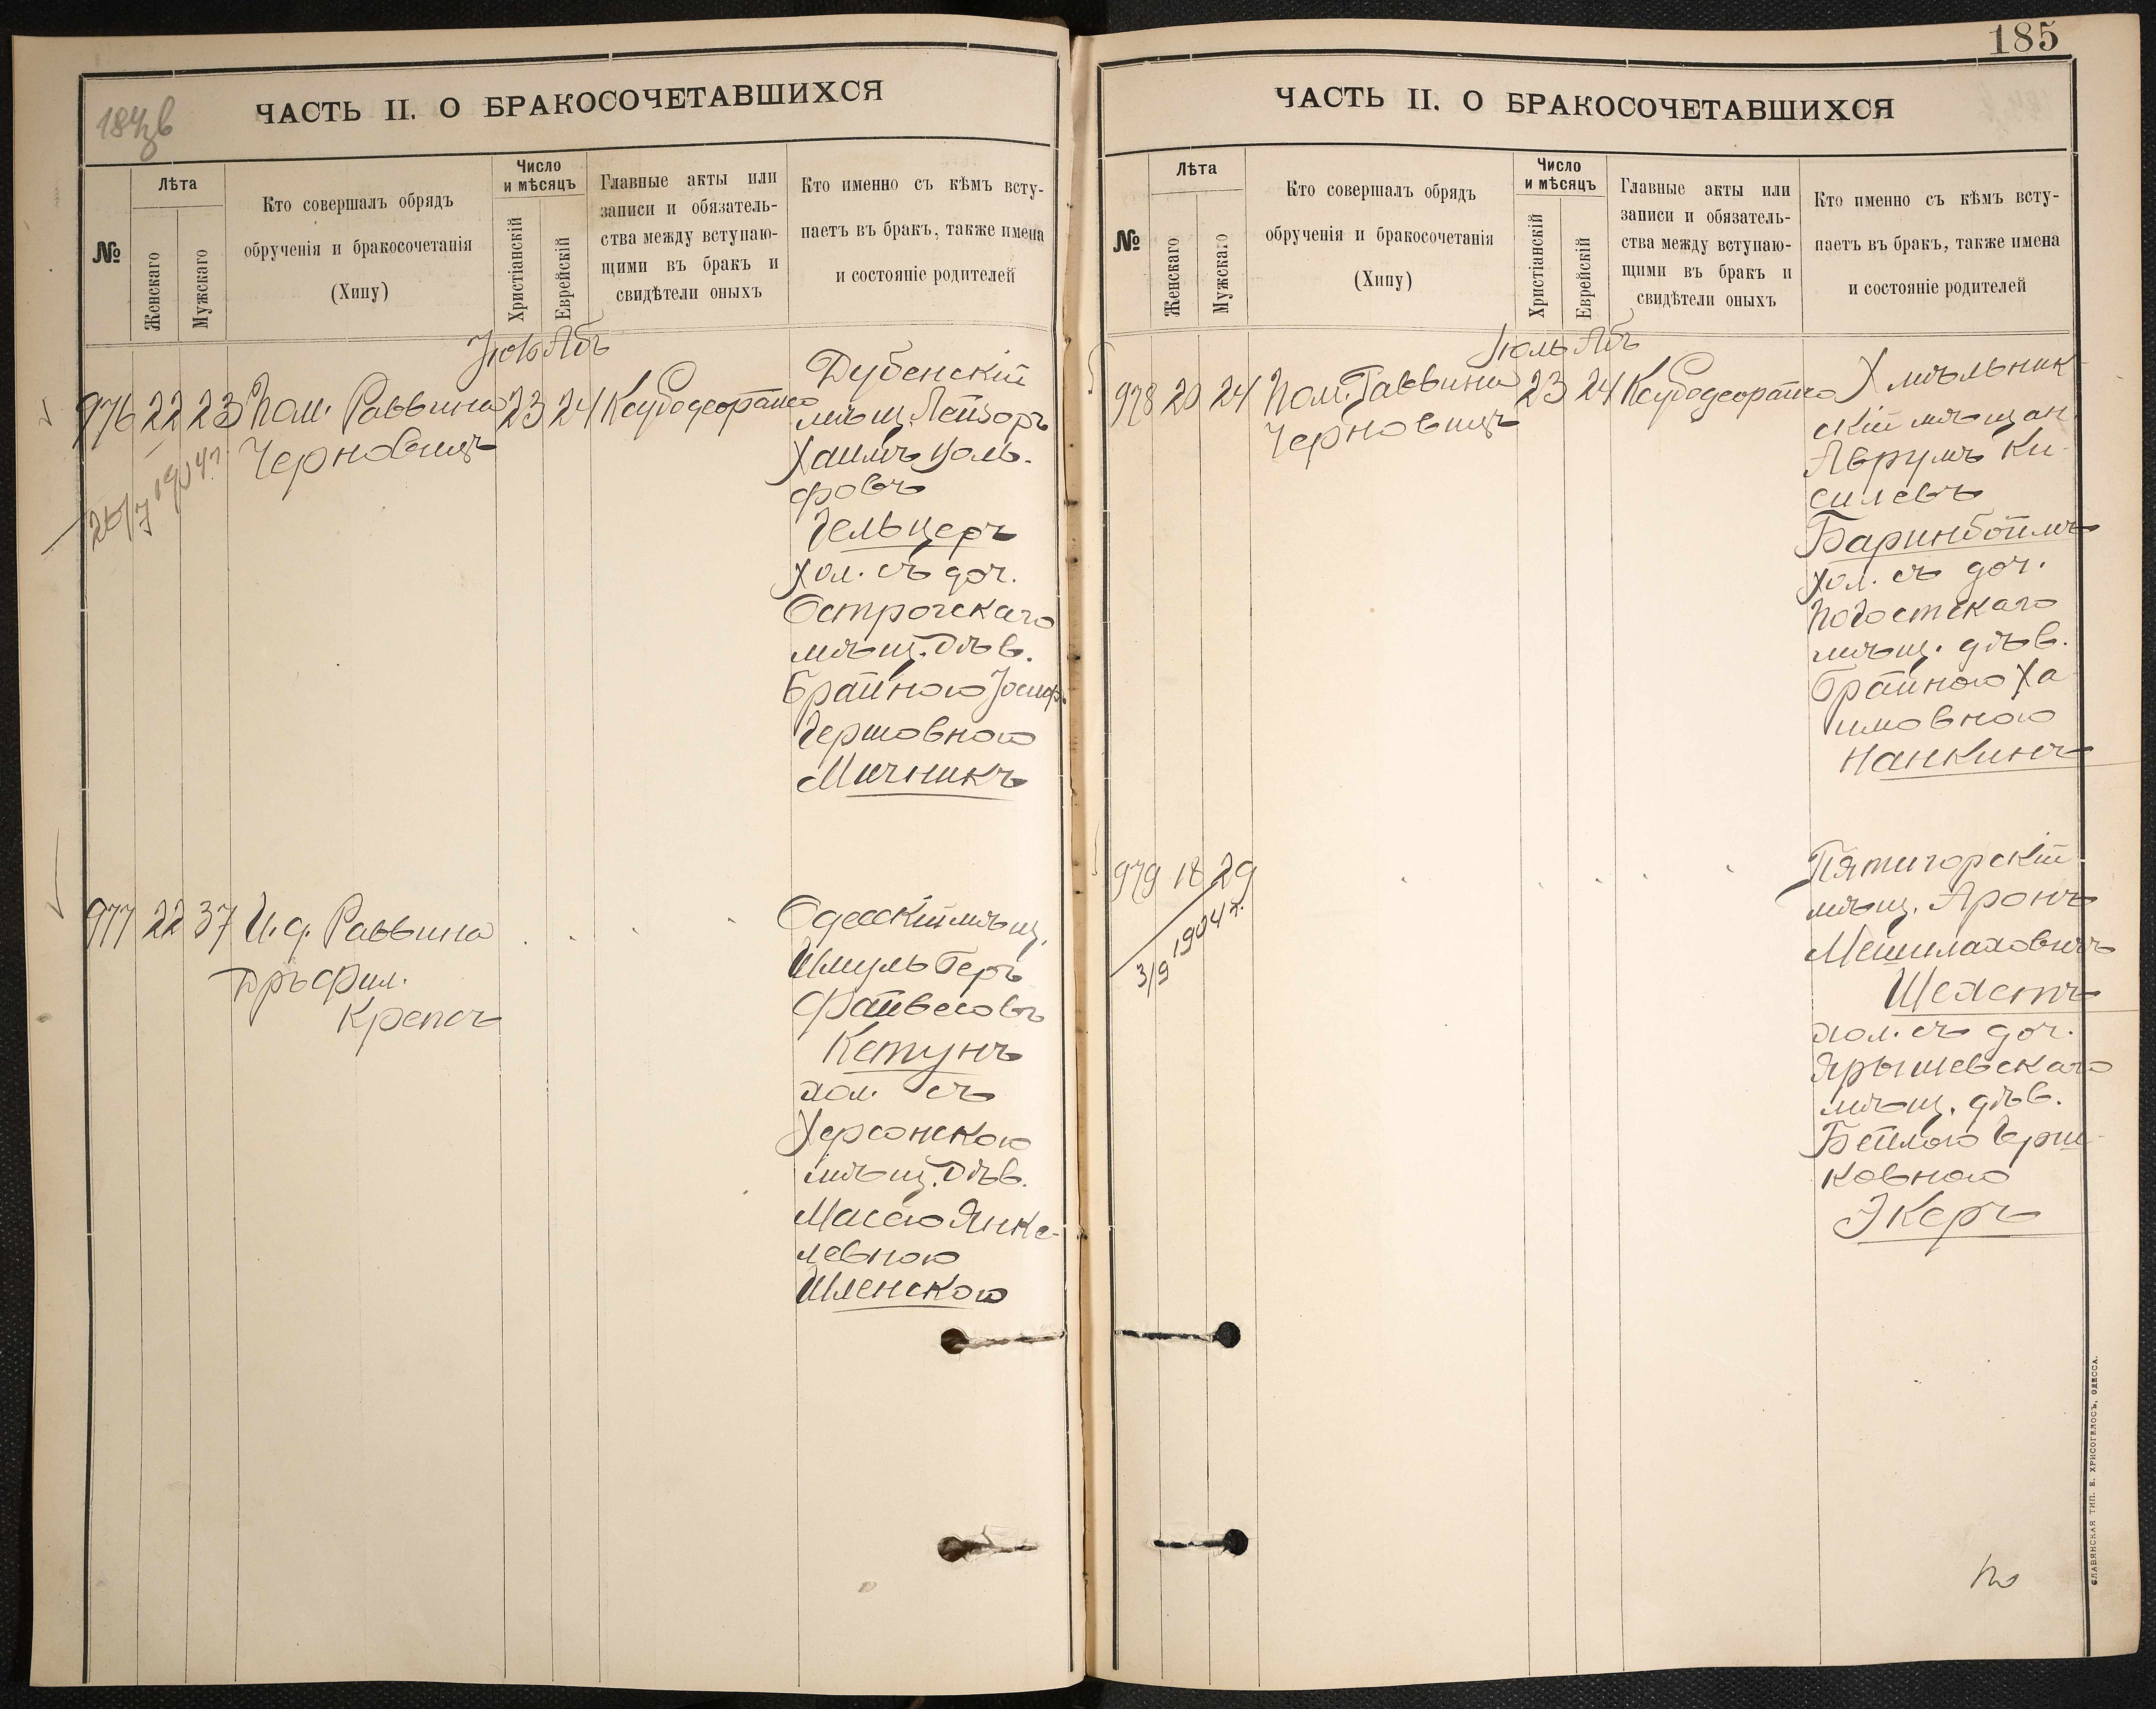 184 зв
ЧАСТЬ II. О БРАКОСОЧЕТАВШИХСЯ
№
Лѣта
Женскаго
Мужскаго
Кто совершалъ обрядъ
обрученія и бракосочетанія
(Хипу)
Число
и мѣсяцъ
Христіанскій
Еврейскій
Главные акты или
записи и обязатель-
ства между вступаю-
щими въ бракъ и
свидѣтели оныхъ
Кто именно съ кѣмъ всту-
паетъ въ бракъ, также имена
и состояніе родителей
Іюль Абъ
976 22 23 Пом. Раввина 23 24
Черновицъ
1904 г.
Дубенскій
мѣщ. Лейзоръ
Хаимъ Воль-
фовъ
Гельцеръ
хол. съ доч.
Острогскаго
мѣщ. дѣв.
Брайною Іосиф.
Гершовною
Мичникъ
977 22 37 И. д. Раввина
Дръ Фил.
Крепсъ
Одесскій мѣщ.
Шмуль Беръ
Файвесовъ
Кетунъ
хол. съ
Херсонскою
мѣщ. дѣв.
Масею Янке-
левною
Шленскою
185
ЧАСТЬ II. О БРАКОСОЧЕТАВШИХСЯ
№
Лѣта
Женскаго
Мужскаго
Кто совершалъ обрядъ
обрученія и бракосочетанія
(Хипу)
Число
и мѣсяцъ
Христіанскій
Еврейскій
Главные акты или
записи и обязатель-
ства между вступаю-
щими въ бракъ и
свидѣтели оныхъ
Кто именно съ кѣмъ всту-
паетъ въ бракъ, также имена
и состояніе родителей
Іюль Абъ
978 20 24 Пом. Раввина 23 24
Черновицъ
Хмѣльник-
скій мѣщан.
Аврумъ Ки-
силевъ
Баринбоймъ
хол. съ доч.
Погостскаго
мѣщ. дѣв.
Брайною Ха-
имовною
Нанкинъ
979 18 29
3/9 1904 г.
Пятигорскій
мѣщ. Аронъ
Мешилаховичъ
Шехетъ
хол. съ доч.
Ярышевскаго
мѣщ. дѣв.
Бейлою Герш-
ковною
Экеръ
СЛАВЯНСКАЯ ТИП. Е. ХРИСОГЕЛОСЪ, ОДЕССА.